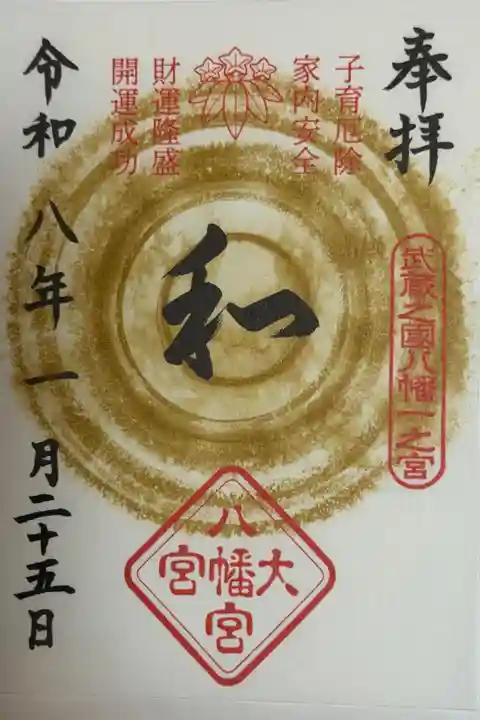 奉拝
武蔵之國八幡一之宮
子育厄除
家内安全
財運隆盛
開運成功
和
大宮
八幡宮
令和八年一月二十五日